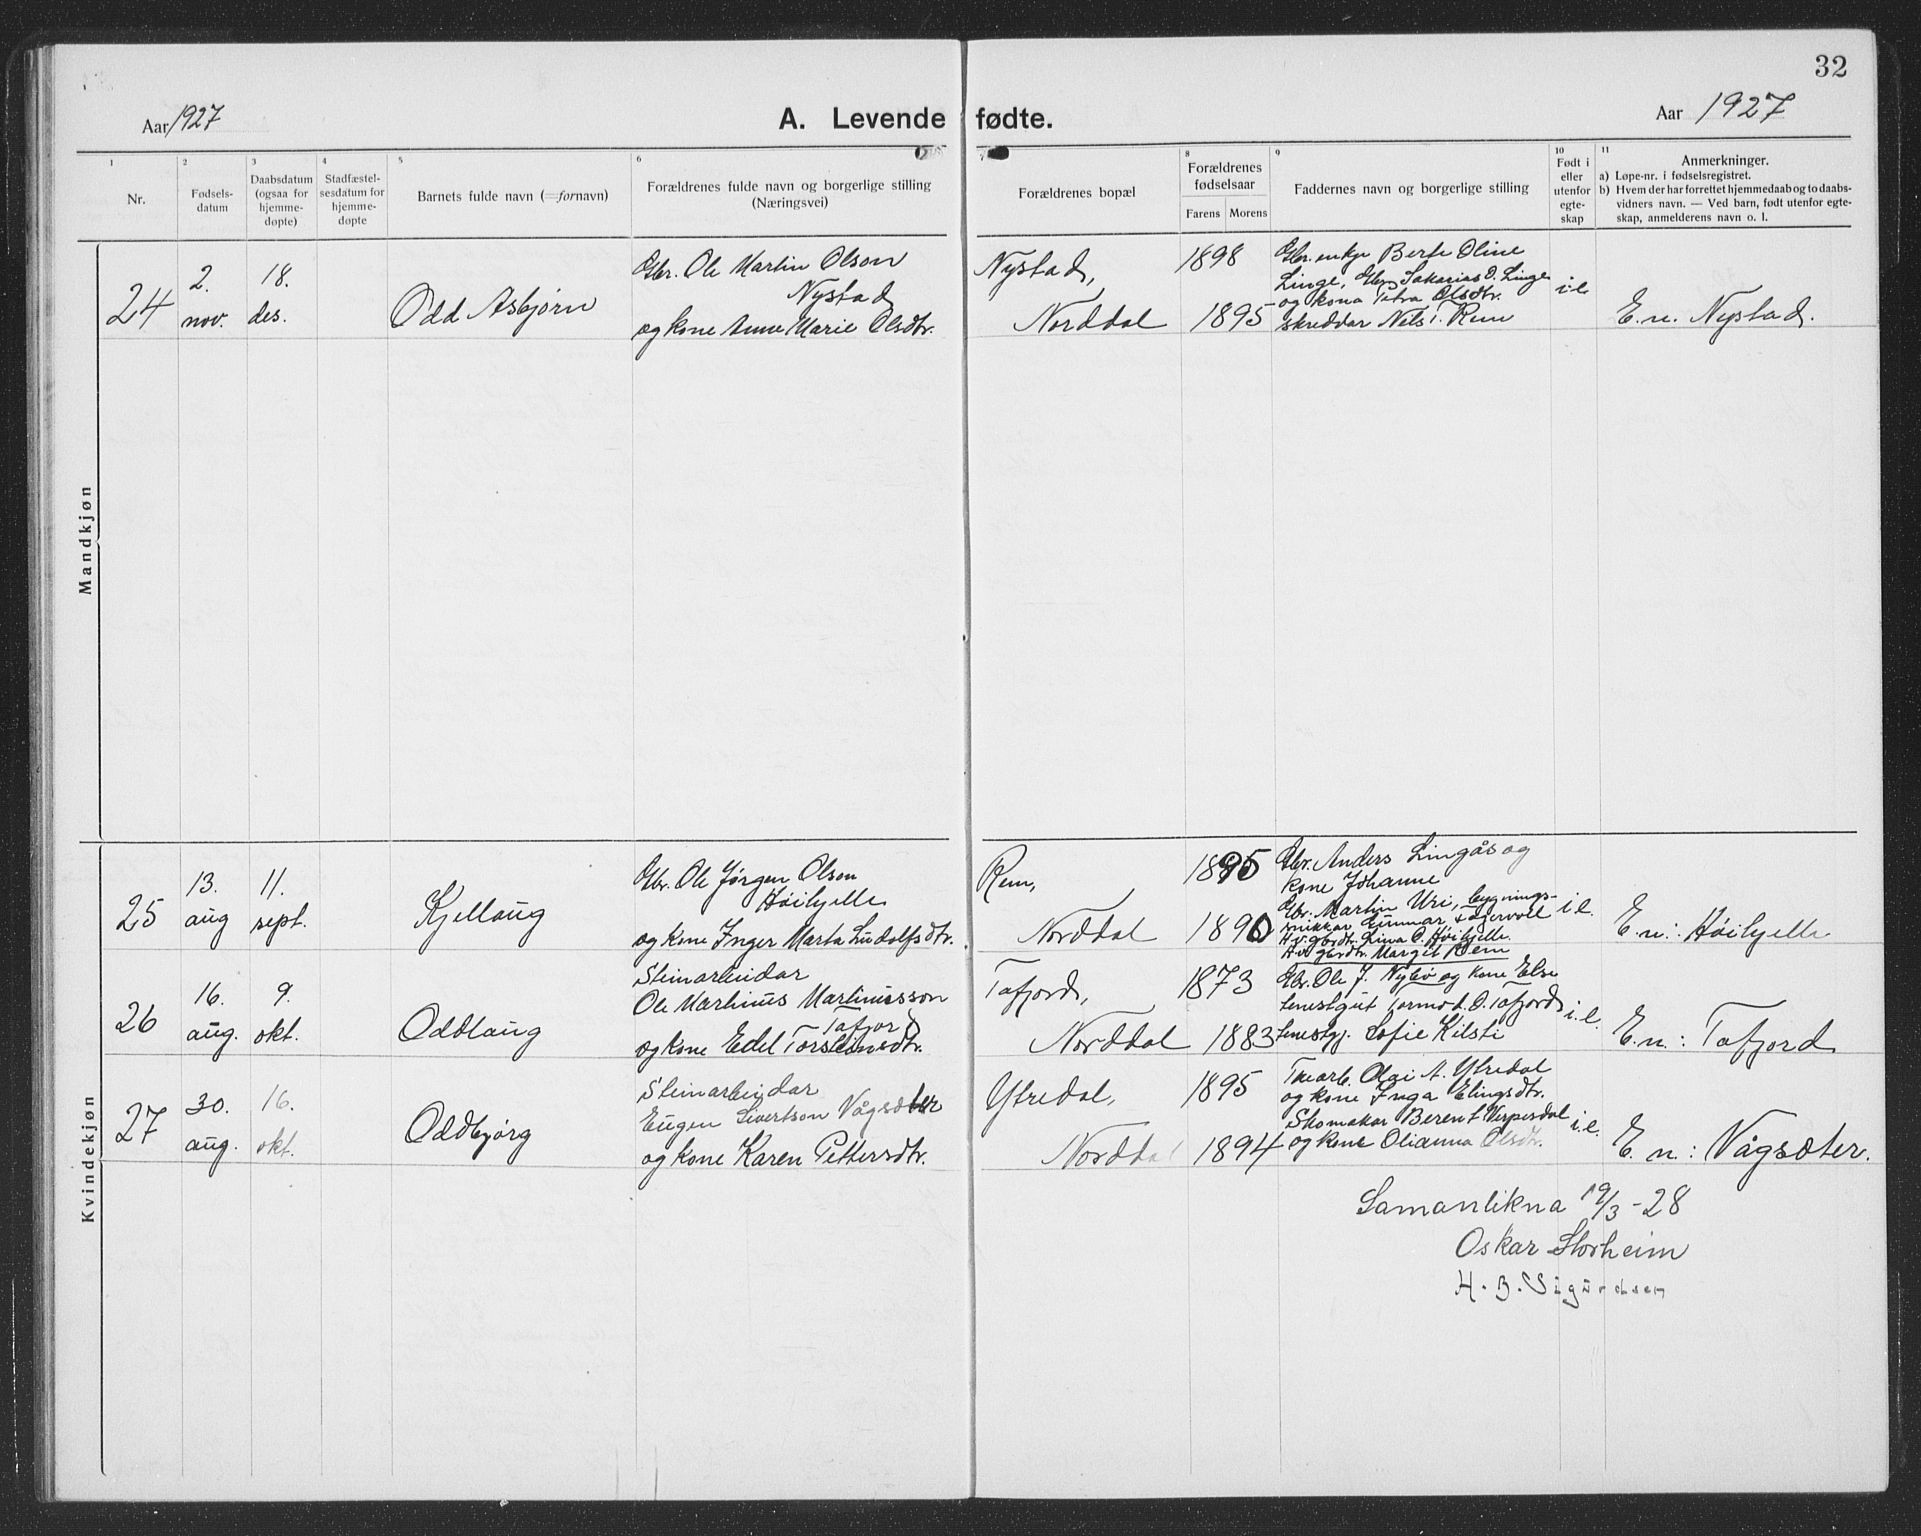 32
Aar 1927
A. Levende fødte.
Aar 1927
1 2 3 4 5 6 7 8 9 10 11
Nr.
Fødsels-
datum
Daabsdatum
(ogsaa for
hjemme-
døpte)
Stadfæstel-
sesdatum for
hjemme-
døpte
Barnets fulde navn (=fornavn)
Forældrenes fulde navn og borgerlige stilling
(Næringsvei)
Forældrenes bopæl
Forældrenes
fødselsaar
Farens Morens
Faddernes navn og borgerlige stilling
Født i
eller
utenfor
egte-
skap
Anmerkninger.
a) Løpe-nr. i fødselsregistret.
b) Hvem der har forrettet hjemmedaab og to daabs-
vidners navn. — Ved barn, født utenfor egte-
skap, anmelderens navn o. l.
Mandkjøn
24
2.
nov.
18.
des.
Odd Asbjørn
Gbr. Ole Martin Olson
Nystad
og kone Anne Marie Olsdtr.
Nystad,
Norddal
1898
1895
Gbr. enkje Berte Oline
Linge, Gbr. Sakarias O. Linge
og kona Petra Olsdtr.
skreddar Nels i. Rem
i.e.
E.n. Nystad.
Kvindekjøn
25
13.
aug
11.
sept.
Kjellaug
Gbr. Ole Jørgen Olson
Høihjelle
og kone Inger Marta Ludolfsdtr.
Rem,
Norddal
1895
1890
Gbr. Anders Lingås og
kone Johanne
Gbr. Martin Uri, bygnings-
snikkar Gunnar
H.v. gbrdt. Lina O. Høihjelle.
H.v. gbrdtr. Margit Rem
i.e.
E.n.: Høihjelle
26
16.
aug.
9.
okt.
Oddlaug
Steinarbeidar
Ole Martinus Martinusson
Tafjord
og kone Edel Torsteinsdtr.
Tafjord,
Norddal
1873
1883
Gbr. Ole J. Nybø og kone Else
tenestgut Tormod O. Tafjord
tenestgj. Sofie Kilsti
i.e.
E.n.: Tafjord
27
30.
aug.
16.
okt.
Oddbjørg
Steinarbeidar
Eugen Sivertson Vågsæter
og kone Karen Pettersdtr.
Ytredal,
Norddal
1895
1894
Olai A. Ytredal
og kone Inga Elingsdtr.
Skomakar Berent Verpesdal
og kone Olianna Olsdtr.
i.e.
E. n.: Vågsæter.
Samanlikna 19/3-28
Oskar Storheim
H. B. Sigurdsen